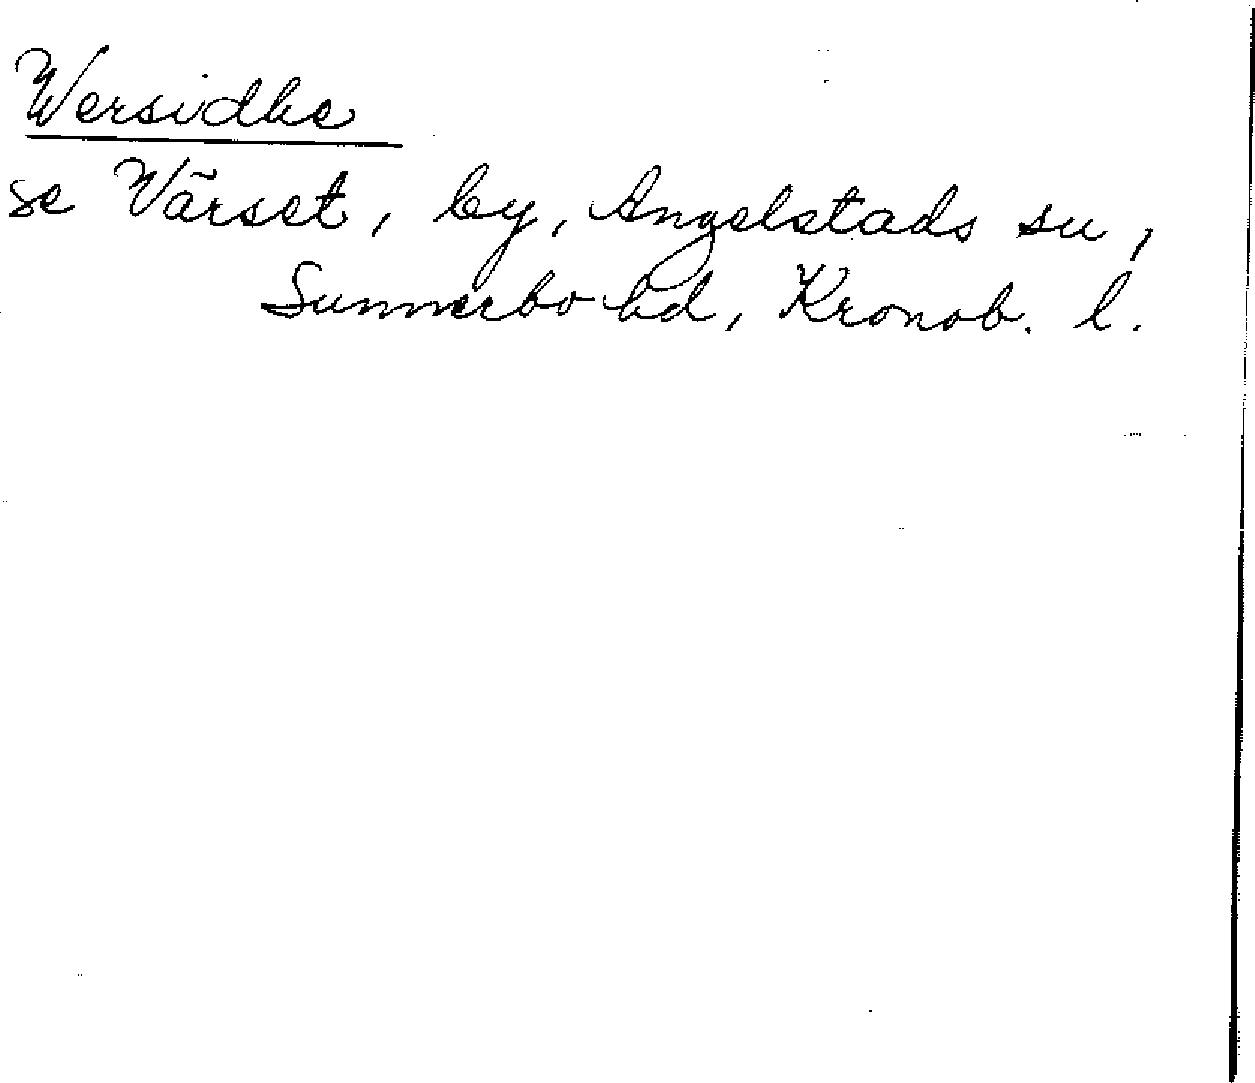 Wersidhe
se Värset, by, Angelstads sn,
Sunnerbo hd, Kronob. l.